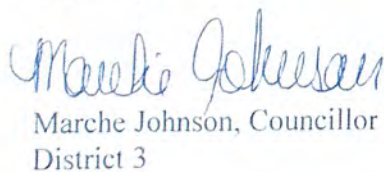 Marche Johnson
Marche Johnson, Councillor
District 3